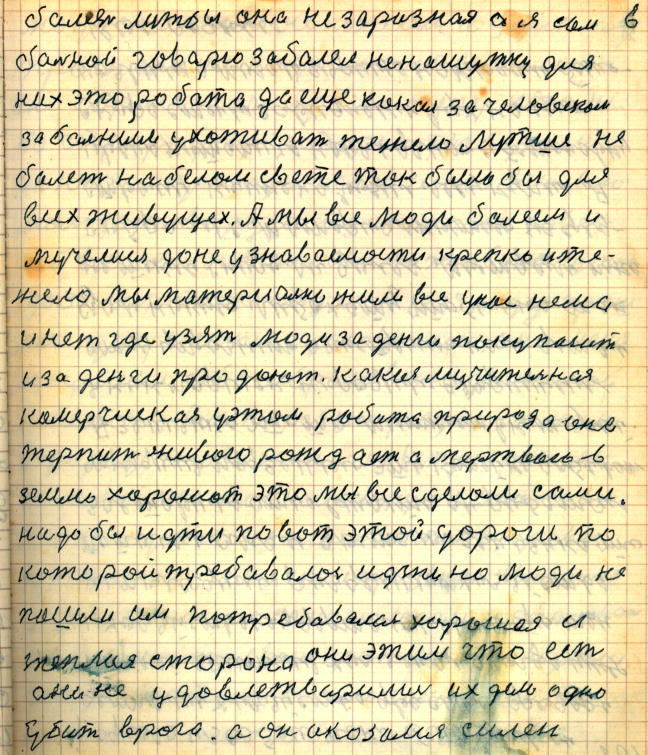 болеть лутьбы она незаразная а я сам 6
бапной говарю забалел ненашутку для
них это работа да еще какая за человеком
забалним ухоживат тежело лутши не
болет набелом свете так былабы для
всех живущех. А мы все люди болеем и
мучелися донеузнаваемости крепко ите-
жело мы материално жили все унас нема
и нет где узят люди за денги покупают
и за денги продают. Какая мучителная
комерчиская уэтом работа природа она
терпит живого рождает а мертвого в
землю хоронют это мы все сделали сами.
надо бы идти повот этой дороги по
которой требавалос идти но люди не
пошли им потребавалас хорошая и
теплая сторона они этим что ест
они не удовлетварили их дело одно
убит врага. а он оказался силен